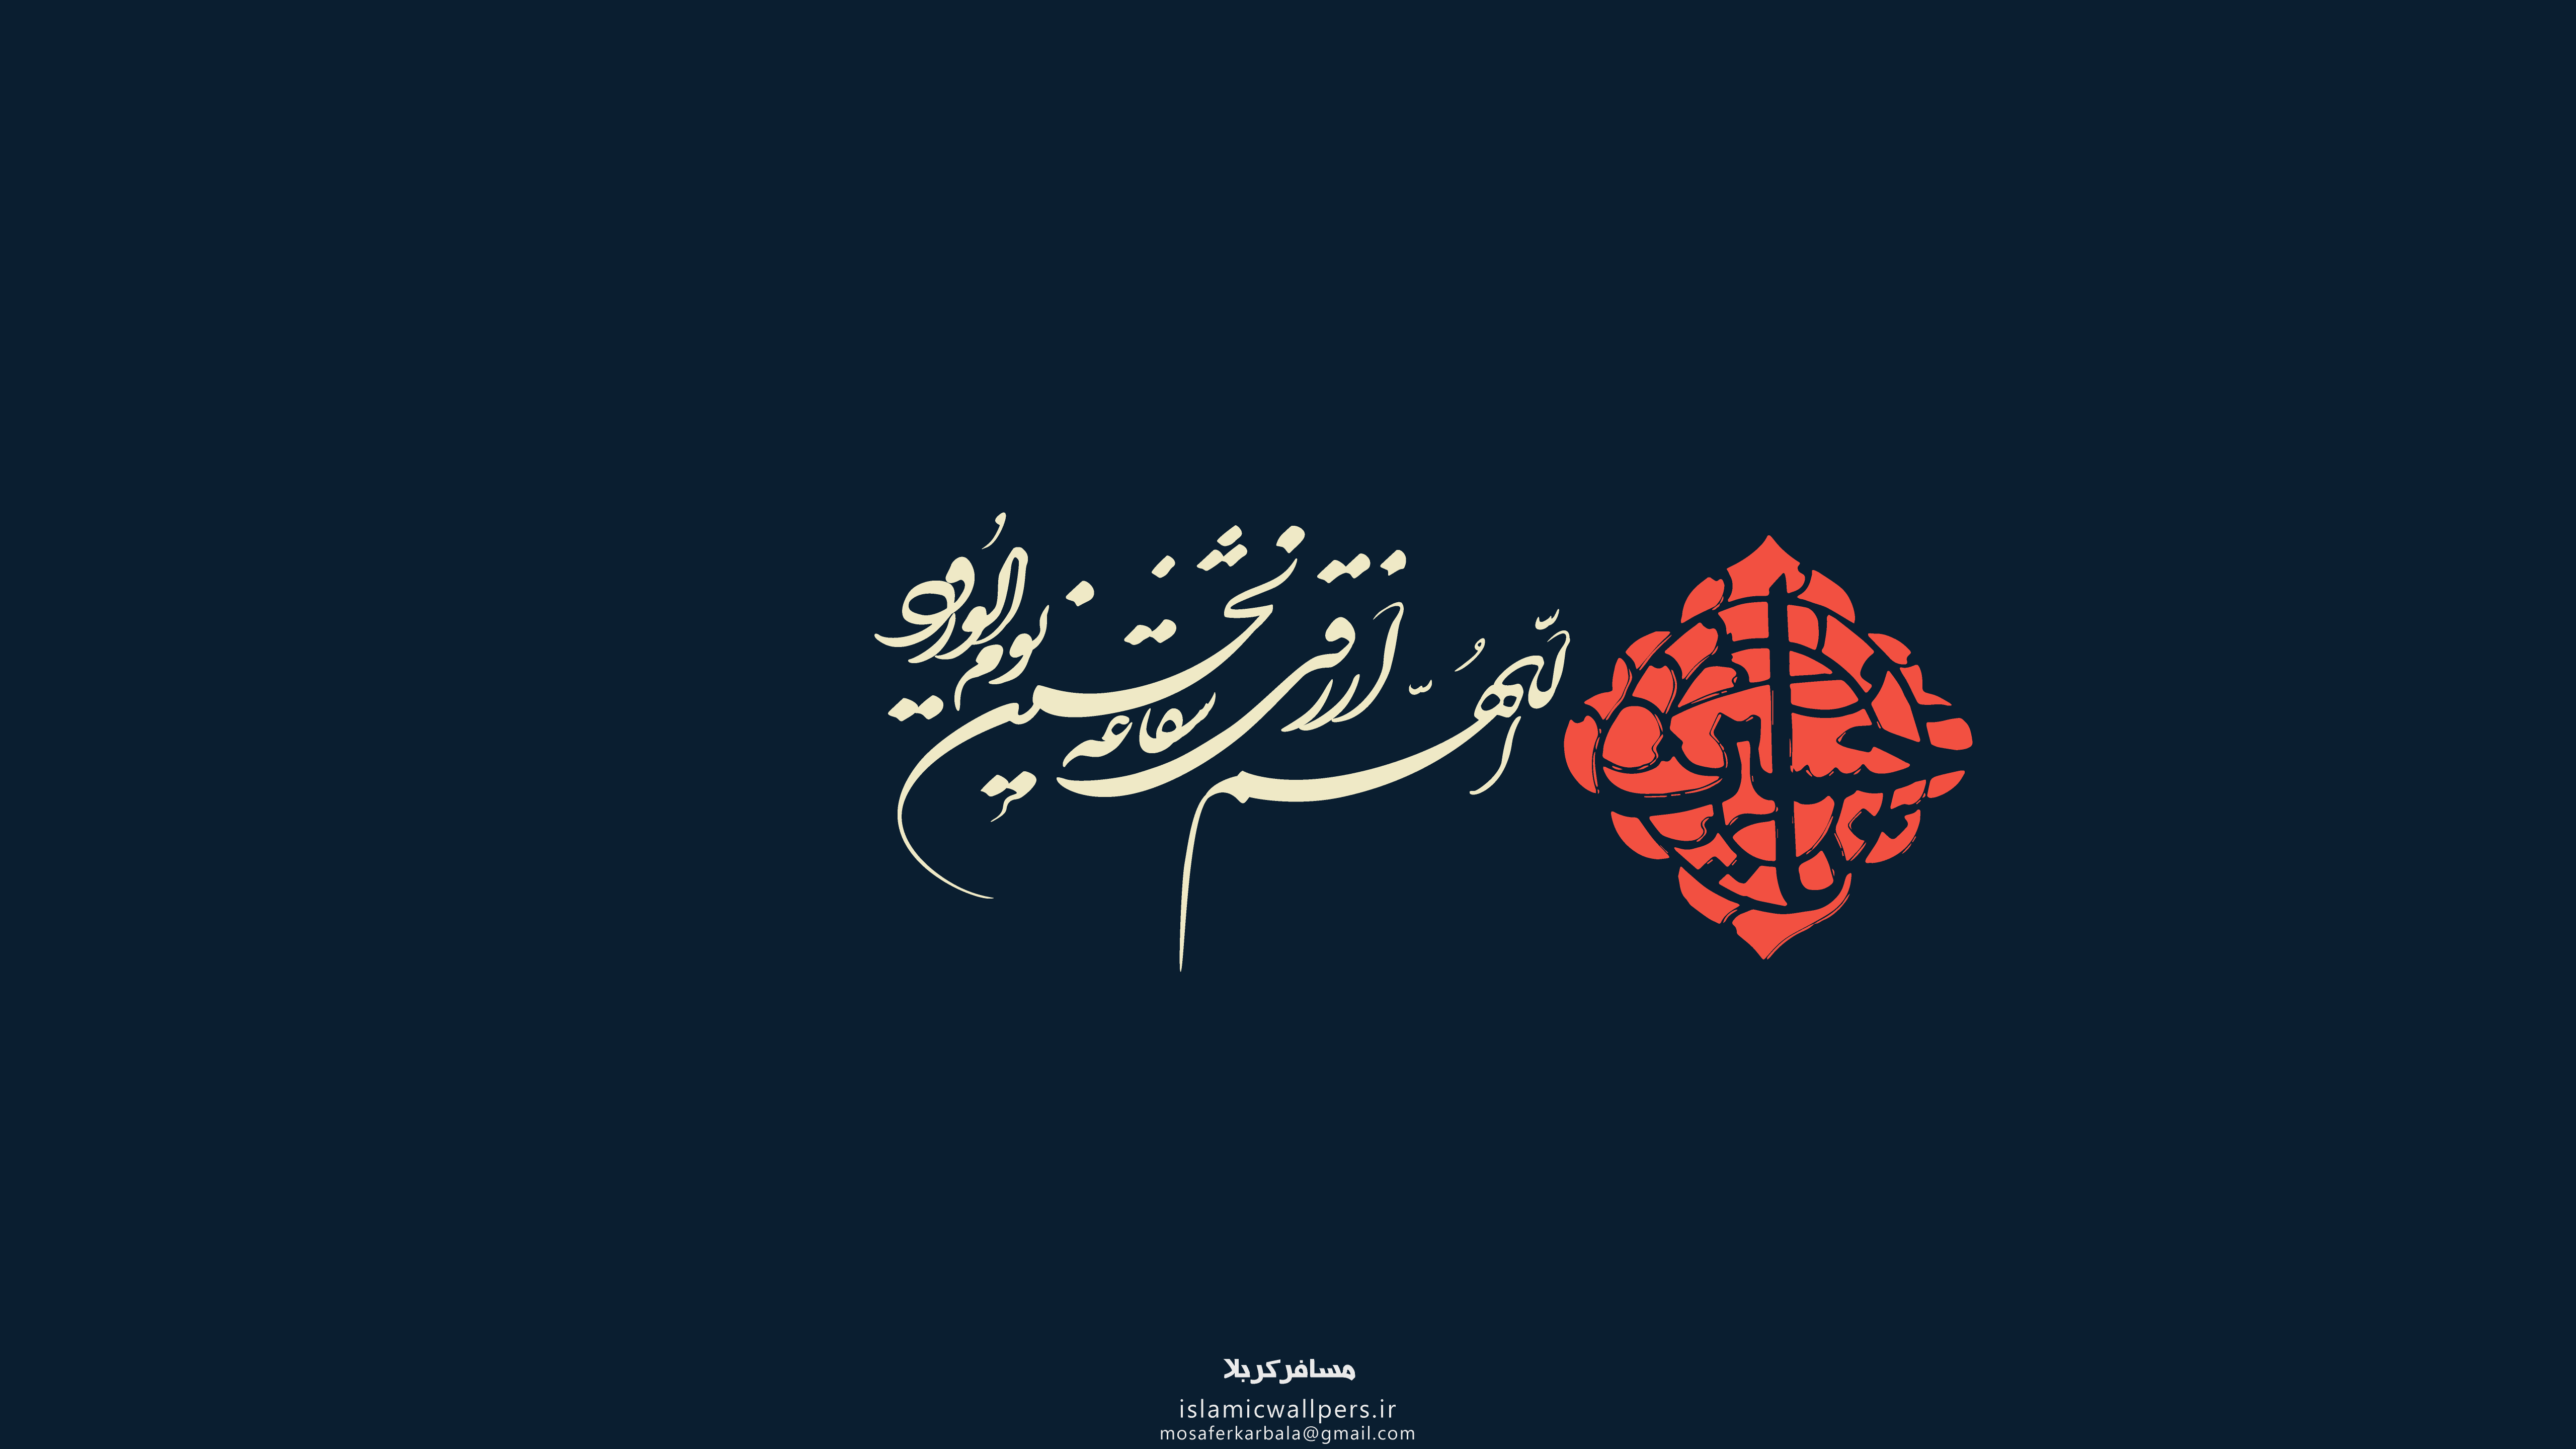 اللّهُمّ ارزقنی شفاعة الحسین یوم الوُرود
مسافر کربلا
islamicwallpers.ir
mosaferkarbala@gmail.com